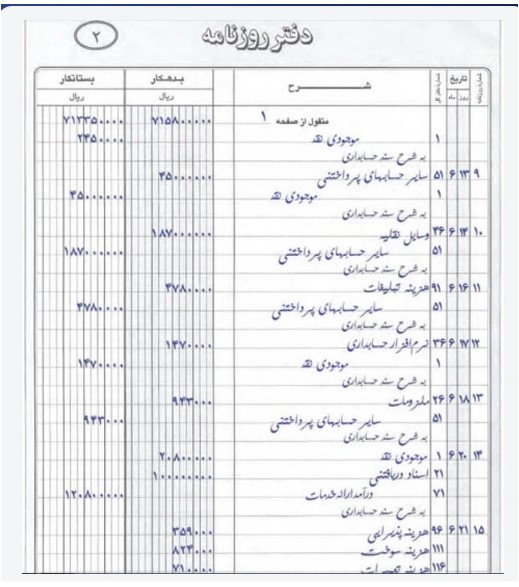 ۲
دفتر روزنامه
شماره روزنامه تاریخ شماره دفتر کل شــــرح بـدهکار بستانکار
روز ماه ریال ریال
منقول از صفحه ۱ ۷۱۵۸۰۰۰۰۰ ۷۱۳۳۵۰۰۰۰
۱ موجودی نقد ۲۴۵۰۰۰۰
به شرح سند حسابداری
۹ ۱۳ ۶ ۵۱ سایر حسابهای پرداختنی ۴۵۰۰۰۰۰۰
۱ موجودی نقد ۴۵۰۰۰۰۰۰
به شرح سند حسابداری
۱۰ ۱۴ ۶ ۲۶ وسایل نقلیه ۱۸۷۰۰۰۰۰۰
۵۱ سایر حسابهای پرداختنی ۱۸۷۰۰۰۰۰۰
به شرح سند حسابداری
۱۱ ۱۶ ۶ ۹۱ هزینه تبلیغات ۴۷۸۰۰۰۰
۵۱ سایر حسابهای پرداختنی ۴۷۸۰۰۰۰
به شرح سند حسابداری
۱۲ ۱۷ ۶ ۳۶ نرم افزار حسابداری ۱۴۷۰۰۰۰
۱ موجودی نقد ۱۴۷۰۰۰۰
به شرح سند حسابداری
۱۳ ۱۸ ۶ ۲۶ ملزومات ۹۴۳۰۰۰
۵۱ سایر حسابهای پرداختنی ۹۴۳۰۰۰
به شرح سند حسابداری
۱۴ ۲۰ ۶ ۱ موجودی نقد ۲۰۸۰۰۰۰۰
۲۱ اسناد دریافتنی ۱۰۰۰۰۰۰۰۰
۷۱ درآمد ارائه خدمات ۱۲۰۸۰۰۰۰۰
به شرح سند حسابداری
۱۵ ۲۱ ۶ ۹۶ هزینه پذیرایی ۳۵۹۰۰۰
۱۱۱ هزینه سوخت ۸۲۴۰۰۰
۱۱۶ هزینه تعمیرات ۷۱۰۰۰۰